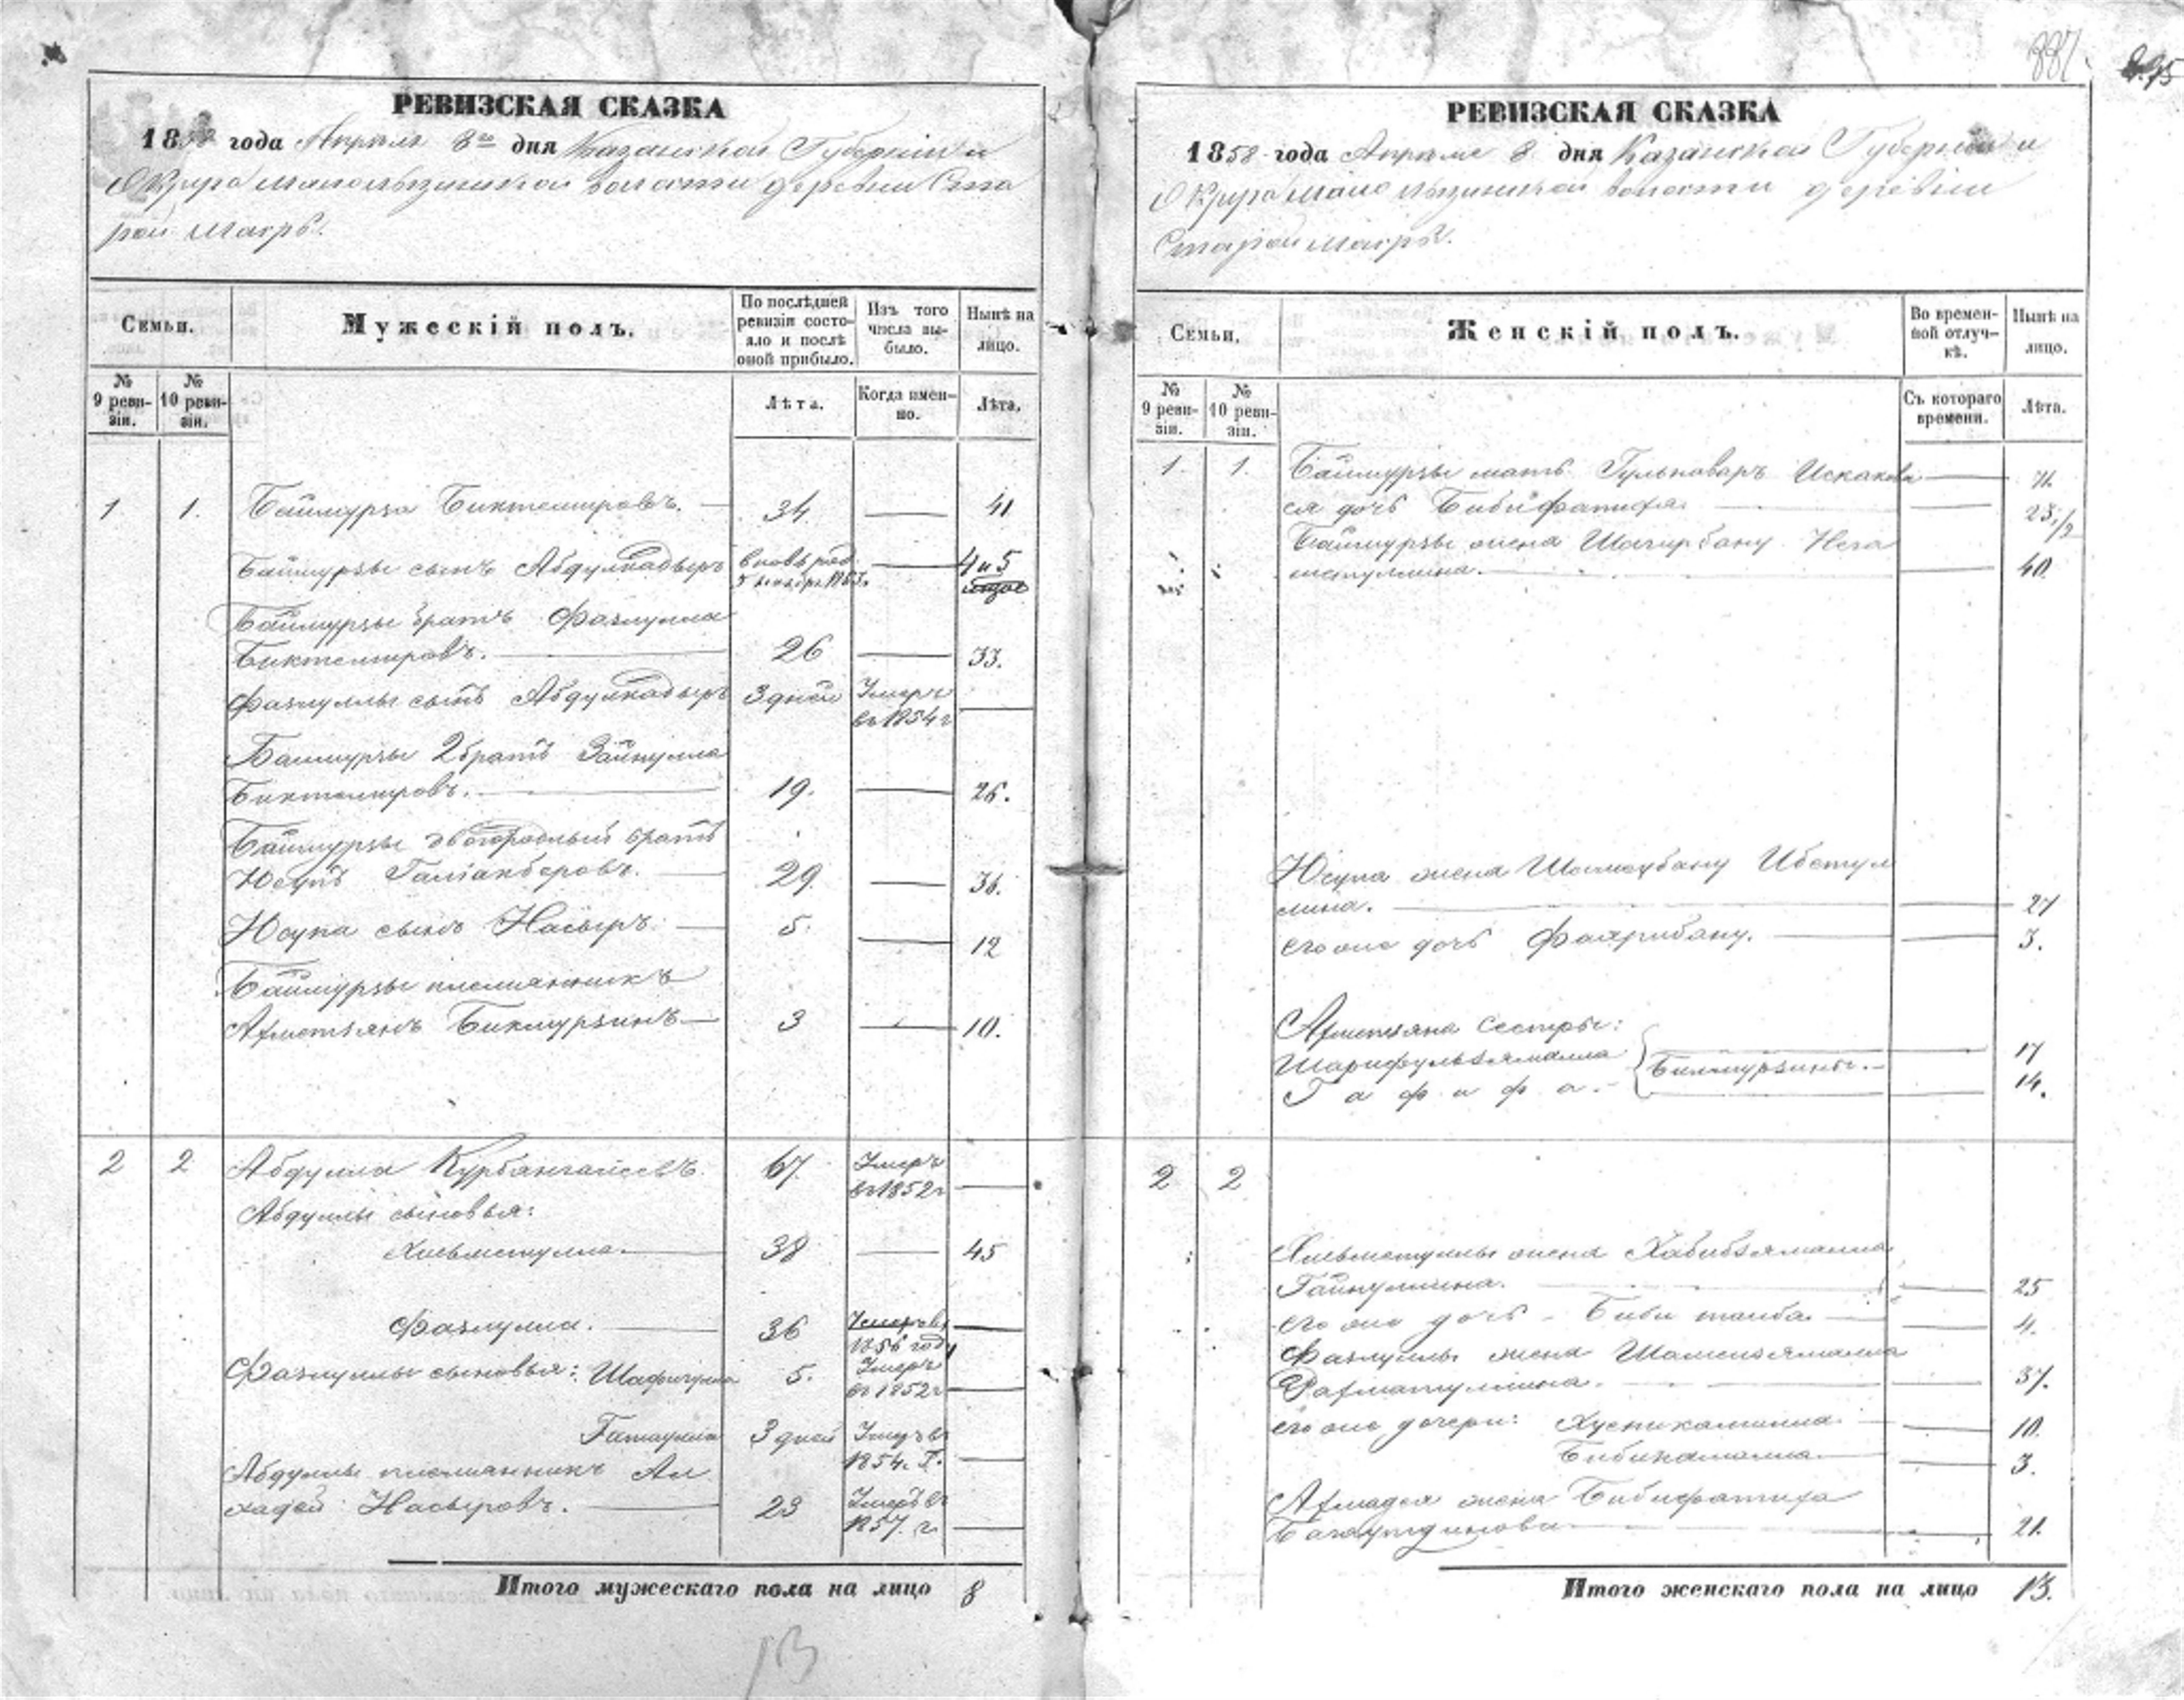 887.
РЕВИЗСКАЯ СКАЗКА
1858 года Апреля 8го дня Казанской Губернии и
Округа волости деревни Ста
рой
Семьи.
Мужескій полъ.
По послѣдней ревизіи состо-
яло и послѣ оной прибыло.
Изъ того числа вы-
было.
Нынѣ на лицо.
№ 9 реви-
зіи.
№ 10 реви-
зіи.
Лѣта.
Когда имен-
но.
Лѣта.
1 1. Баймурза Биктемировъ. 34. 41
Баймурзы сынъ Абдулкадыръ вновь рож 4 и 5
Баймурзы братъ Фазлулла
Биктемировъ. 26 33.
Фазлуллы сынъ Абдулкадыръ 3 дней Умеръ
въ 1854 г
Баймурзы 2 братъ Зайнулла
Биктемировъ. 19. 26.
Баймурзы двоюродный братъ
Юсупъ Галіакберовъ. 29. 36.
Юсупа сынъ Насыръ 5. 12
Баймурзы племянникъ
Ахметзянъ Бикмурзинъ 3 10.
2 2 Абдулла Курбангалеевъ. 67. Умеръ
въ 1852 г
Абдуллы сыновья:
38 45
Фазлулла. 36 Умеръ въ
1856 году
Фазлуллы сыновья: Шафигулла 5. Умеръ
въ 1852 г
Гатаулла 3 дней Умеръ въ
1854. Г.
Абдуллы племянникъ Ах
мадей Насыровъ. 23 Умеръ въ
1857. г.
Итого мужескаго пола на лицо 8
13
РЕВИЗСКАЯ СКАЗКА
1858 года Апреля 8 дня Казанской Губернии и
Округа волости деревни
Старой
Семьи.
Женскій полъ.
Во времен-
ной отлуч-
кѣ.
Нынѣ на лицо.
№ 9 реви-
зіи.
№ 10 реви-
зіи.
Съ котораго времени.
Лѣта.
1. 1. Баймурзы мать Гульжаваръ Искакова 71.
ея дочь Бибифатиха 23 1/2
Баймурзы жена Шагирбану Нега
метуллина. 40.
Юсупа жена Шамсубану
лина. 27
его же дочь Фахрибану. 3.
Ахметзяна сестры:
Шарифульзямалла 17
Гафифа. Бикмурзины. 14.
2 2
жена Хабибзямалла
Гайнуллина. 25
его же дочь Биби 4.
Фазлуллы жена Шамсизямалла
Рахматуллина. 37.
его же дочери: Хусникамалла 10.
Бибикамалла 3.
Ахмадея жена Бибифатиха
Багаутдинова 21.
Итого женскаго пола на лицо 13.